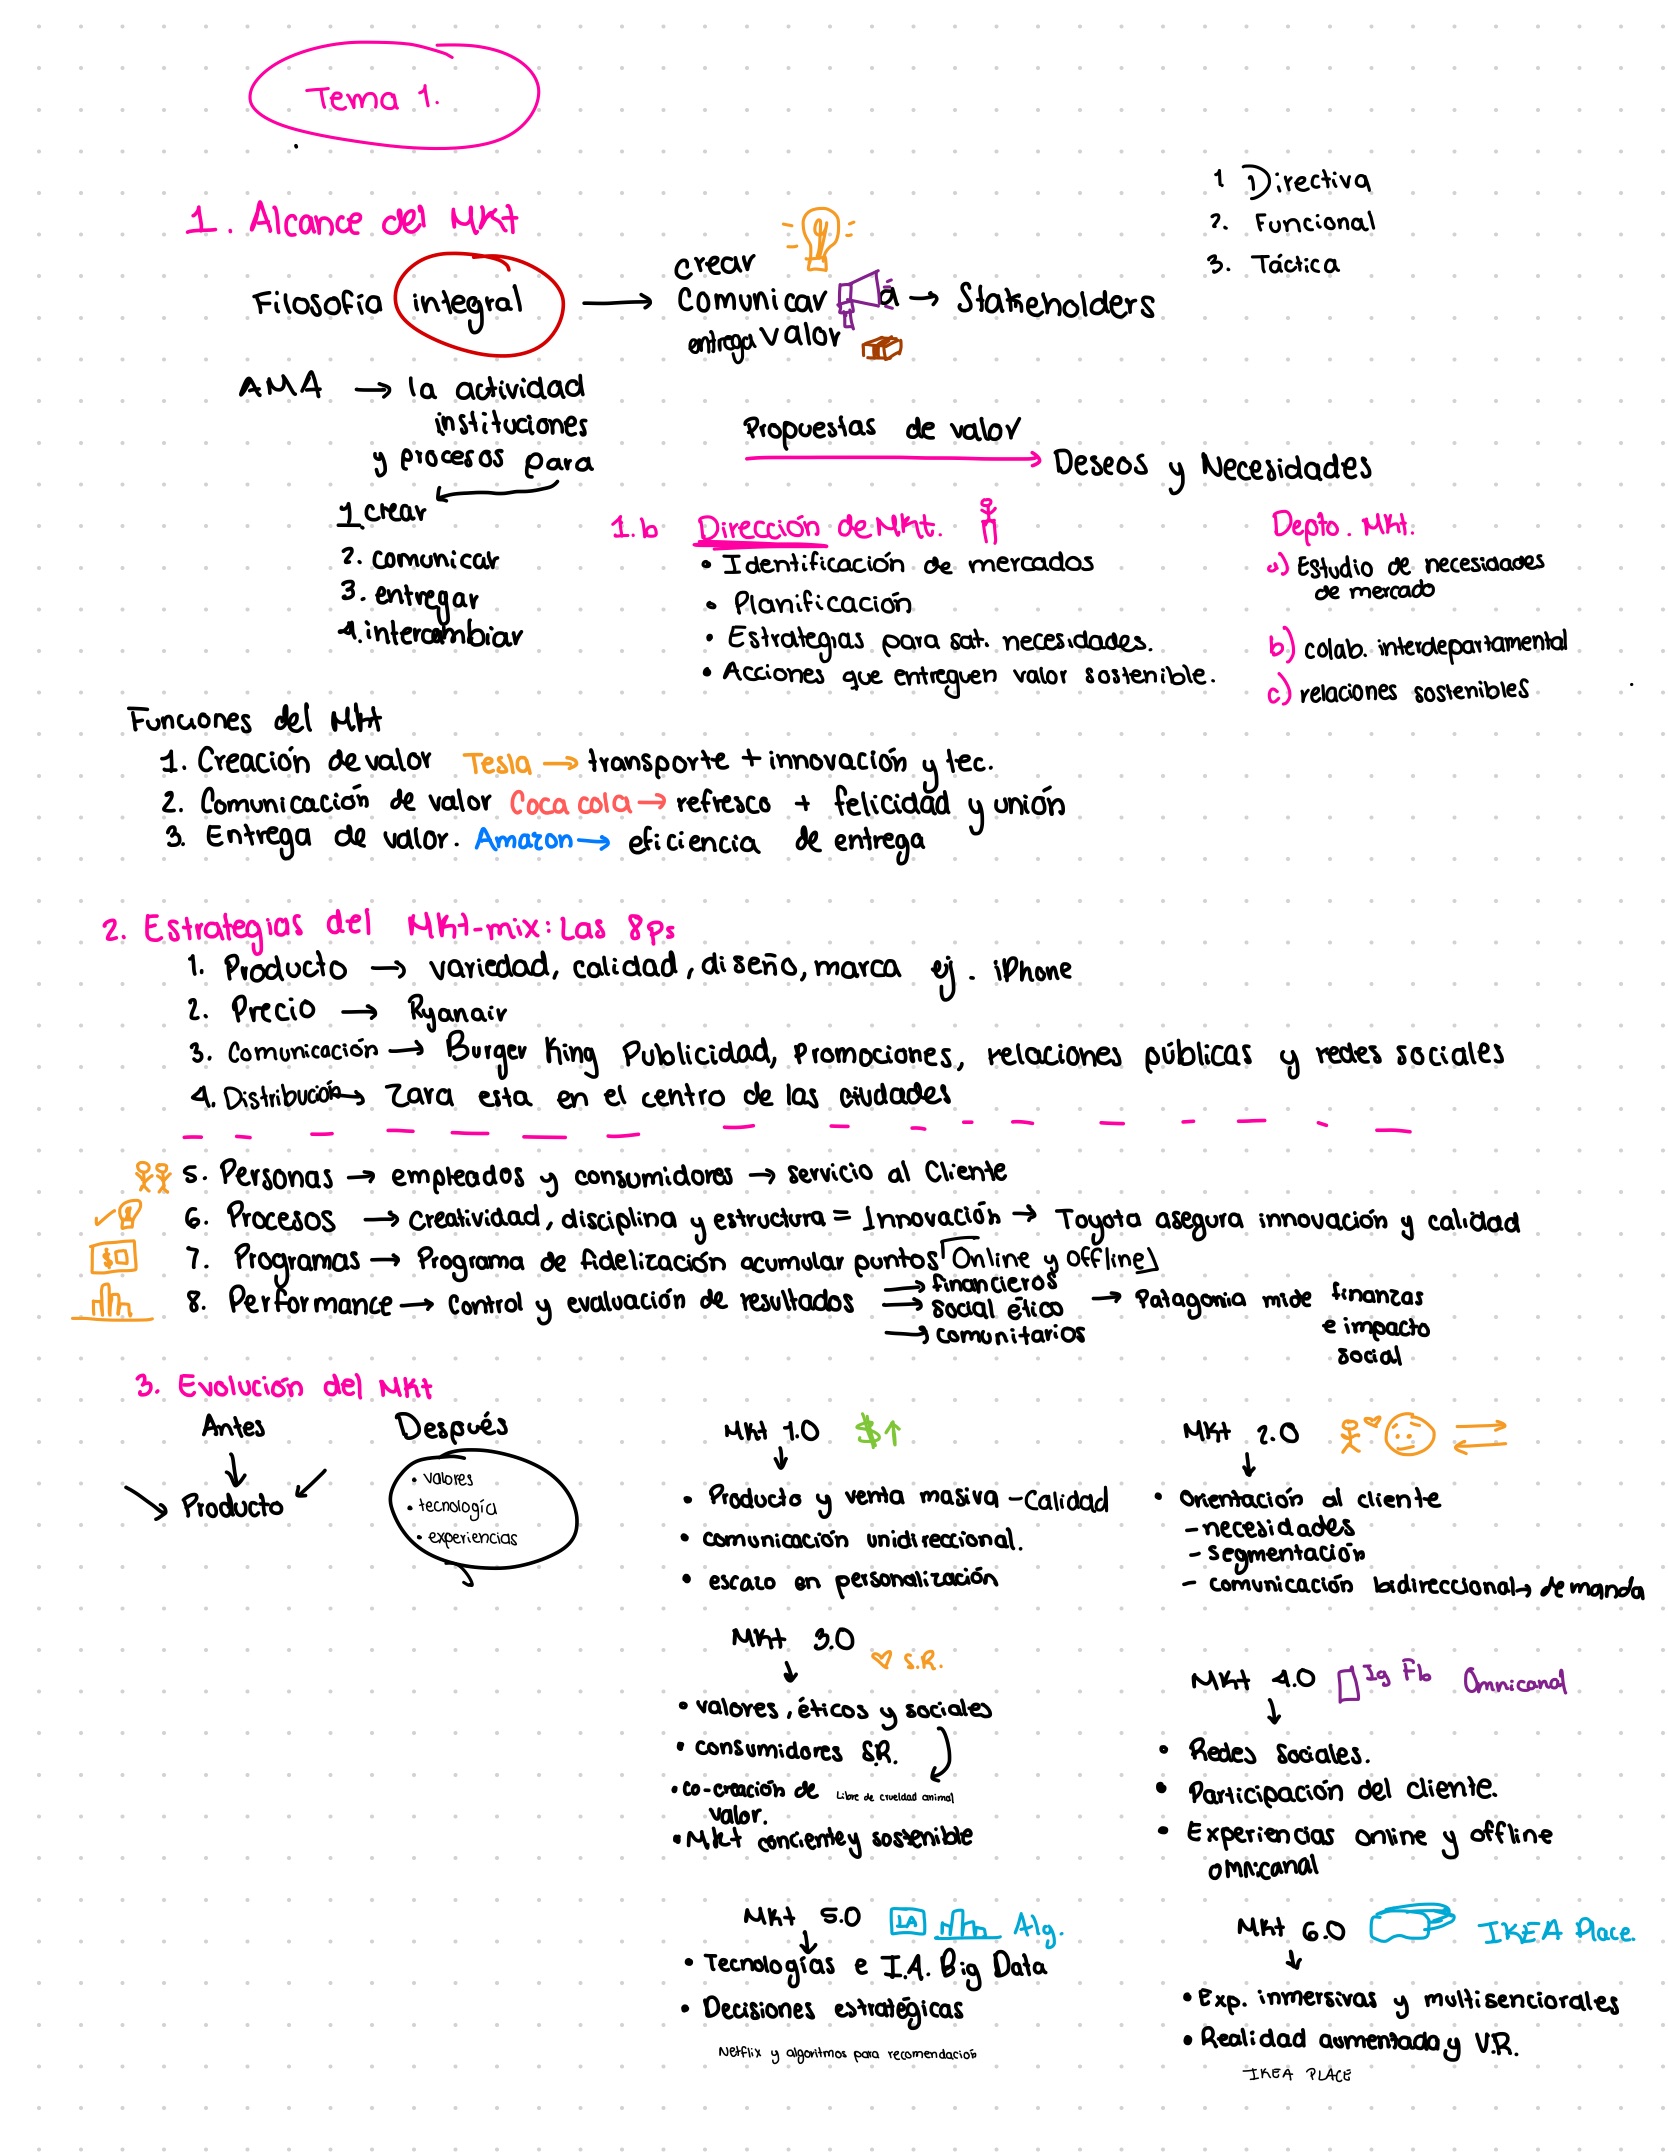 Tema 1.
1 Directiva
2. Funcional
3. Táctica
1. Alcance del Mkt
Filosofía integral → crear
comunicar a → Stakeholders
entrega valor
AMA → la actividad
instituciones
y procesos para
1 crear
2. comunicar
3. entregar
4. intercambiar
Propuestas de valor
→ Deseos y Necesidades
1.b Dirección de Mkt.
• Identificación de mercados
• Planificación
• Estrategias para sat. necesidades.
• Acciones que entreguen valor sostenible.
Depto. Mkt.
a) Estudio de necesidades
de mercado
b) colab. interdepartamental
c) relaciones sostenibles
Funciones del Mkt
1. Creación de valor Tesla → transporte + innovación y tec.
2. Comunicación de valor Coca cola → refresco + felicidad y unión
3. Entrega de valor. Amazon → eficiencia de entrega
2. Estrategias del Mkt-mix: Las 8ps
1. Producto → variedad, calidad, diseño, marca ej. iPhone
2. Precio → Ryanair
3. Comunicación → Burger King Publicidad, Promociones, relaciones públicas y redes sociales
4. Distribución → Zara esta en el centro de las ciudades
5. Personas → empleados y consumidores → servicio al Cliente
6. Procesos → creatividad, disciplina y estructura = Innovación → Toyota asegura innovación y calidad
$
7. Programas → Programa de fidelización acumular puntos Online y offline
8. Performance → Control y evaluación de resultados
→ financieros
→ social ético → Patagonia mide finanzas
→ comunitarios
e impacto
social
3. Evolución del Mkt
Antes
Producto
Después
• valores
• tecnología
• experiencias
Mkt 1.0 $↑
• Producto y venta masiva - Calidad
• comunicación unidireccional.
• escazo en personalización
Mkt 2.0
• orientación al cliente
- necesidades
- segmentación
- comunicación bidireccional → demanda
Mkt 3.0
S.R.
• valores, éticos y sociales
• consumidores S.R.
• co-creación de
valor.
Libre de crueldad animal
• Mkt conciente y sostenible
Mkt 4.0 Ig Fb Omnicanal
• Redes Sociales.
• Participación del cliente.
• Experiencias online y offline
omnicanal
Mkt 5.0 IA Alg.
• Tecnologías e I.A. Big Data
• Decisiones estratégicas
Netflix y algoritmos para recomendación
Mkt 6.0 IKEA Place.
• Exp. inmersivas y multisenciorales
• Realidad aumentada y V.R.
IKEA PLACE